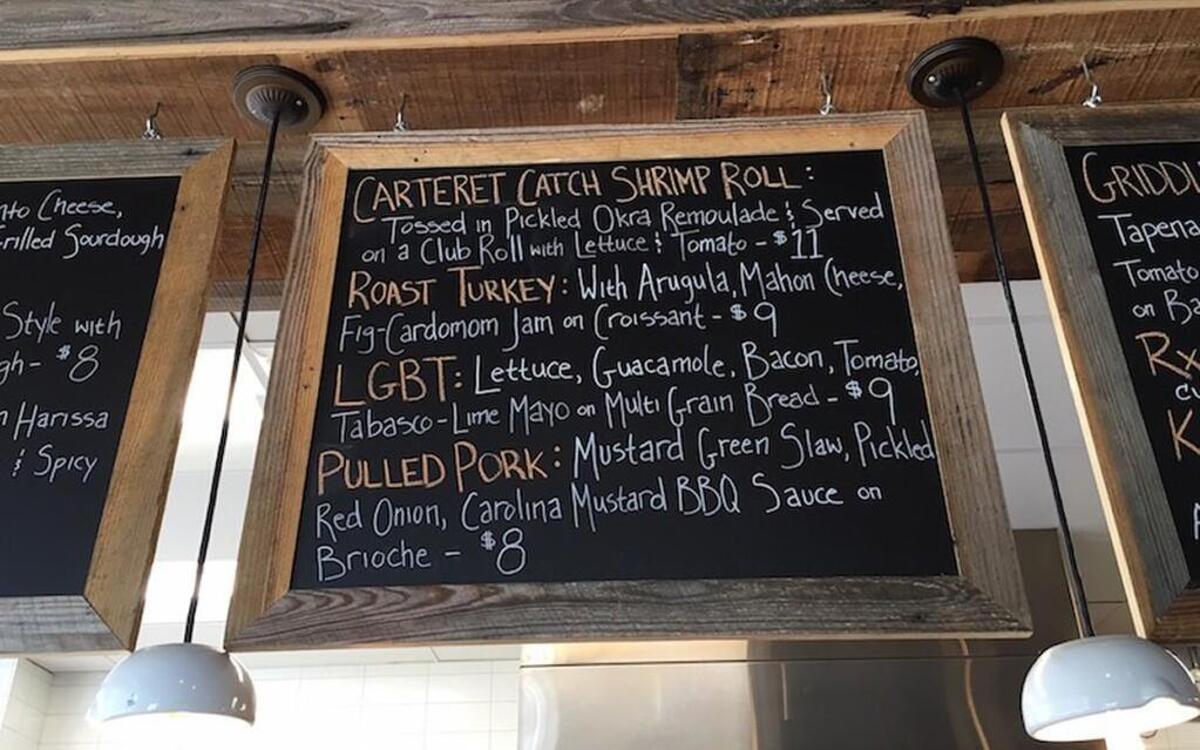 Cheese,
Grilled Sourdough
Style with
$8
Harissa
& Spicy
CARTERET CATCH SHRIMP ROLL:
Tossed in Pickled Okra Remoulade & Served
on a Club Roll with Lettuce & Tomato - $11
ROAST TURKEY: With Arugula, Mahon Cheese,
Fig-Cardomom Jam on Croissant - $9
LGBT: Lettuce, Guacamole, Bacon, Tomato,
Tabasco-Lime Mayo on Multi Grain Bread - $9
PULLED PORK: Mustard Green Slaw, Pickled
Red Onion, Carolina Mustard BBQ Sauce on
Brioche - $8
Tomato
on
Rx